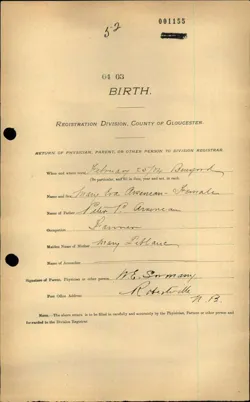 52
001155
04 05
BIRTH.
REGISTRATION DIVISION, COUNTY OF GLOUCESTER.
RETURN OF PHYSICIAN, PARENT, OR OTHER PERSON TO DIVISION REGISTRAR.
When and where born, February 25/04
(Be particular, and fill in date, year and sex, in each.)
Name and Sex, Eva Female
Name of Father, Peter P. Arseneau
Occupation Farmer
Maiden Name of Mother, Mary
Name of Accoucheur
Signature of Parent, Physician or other person, W.E.
Post Office Address, Robertville
N.B.
NOTE: (The above return is to be filled in carefully and correctly by the Physician, Parents or other person and
forwarded to the Division Registrar.